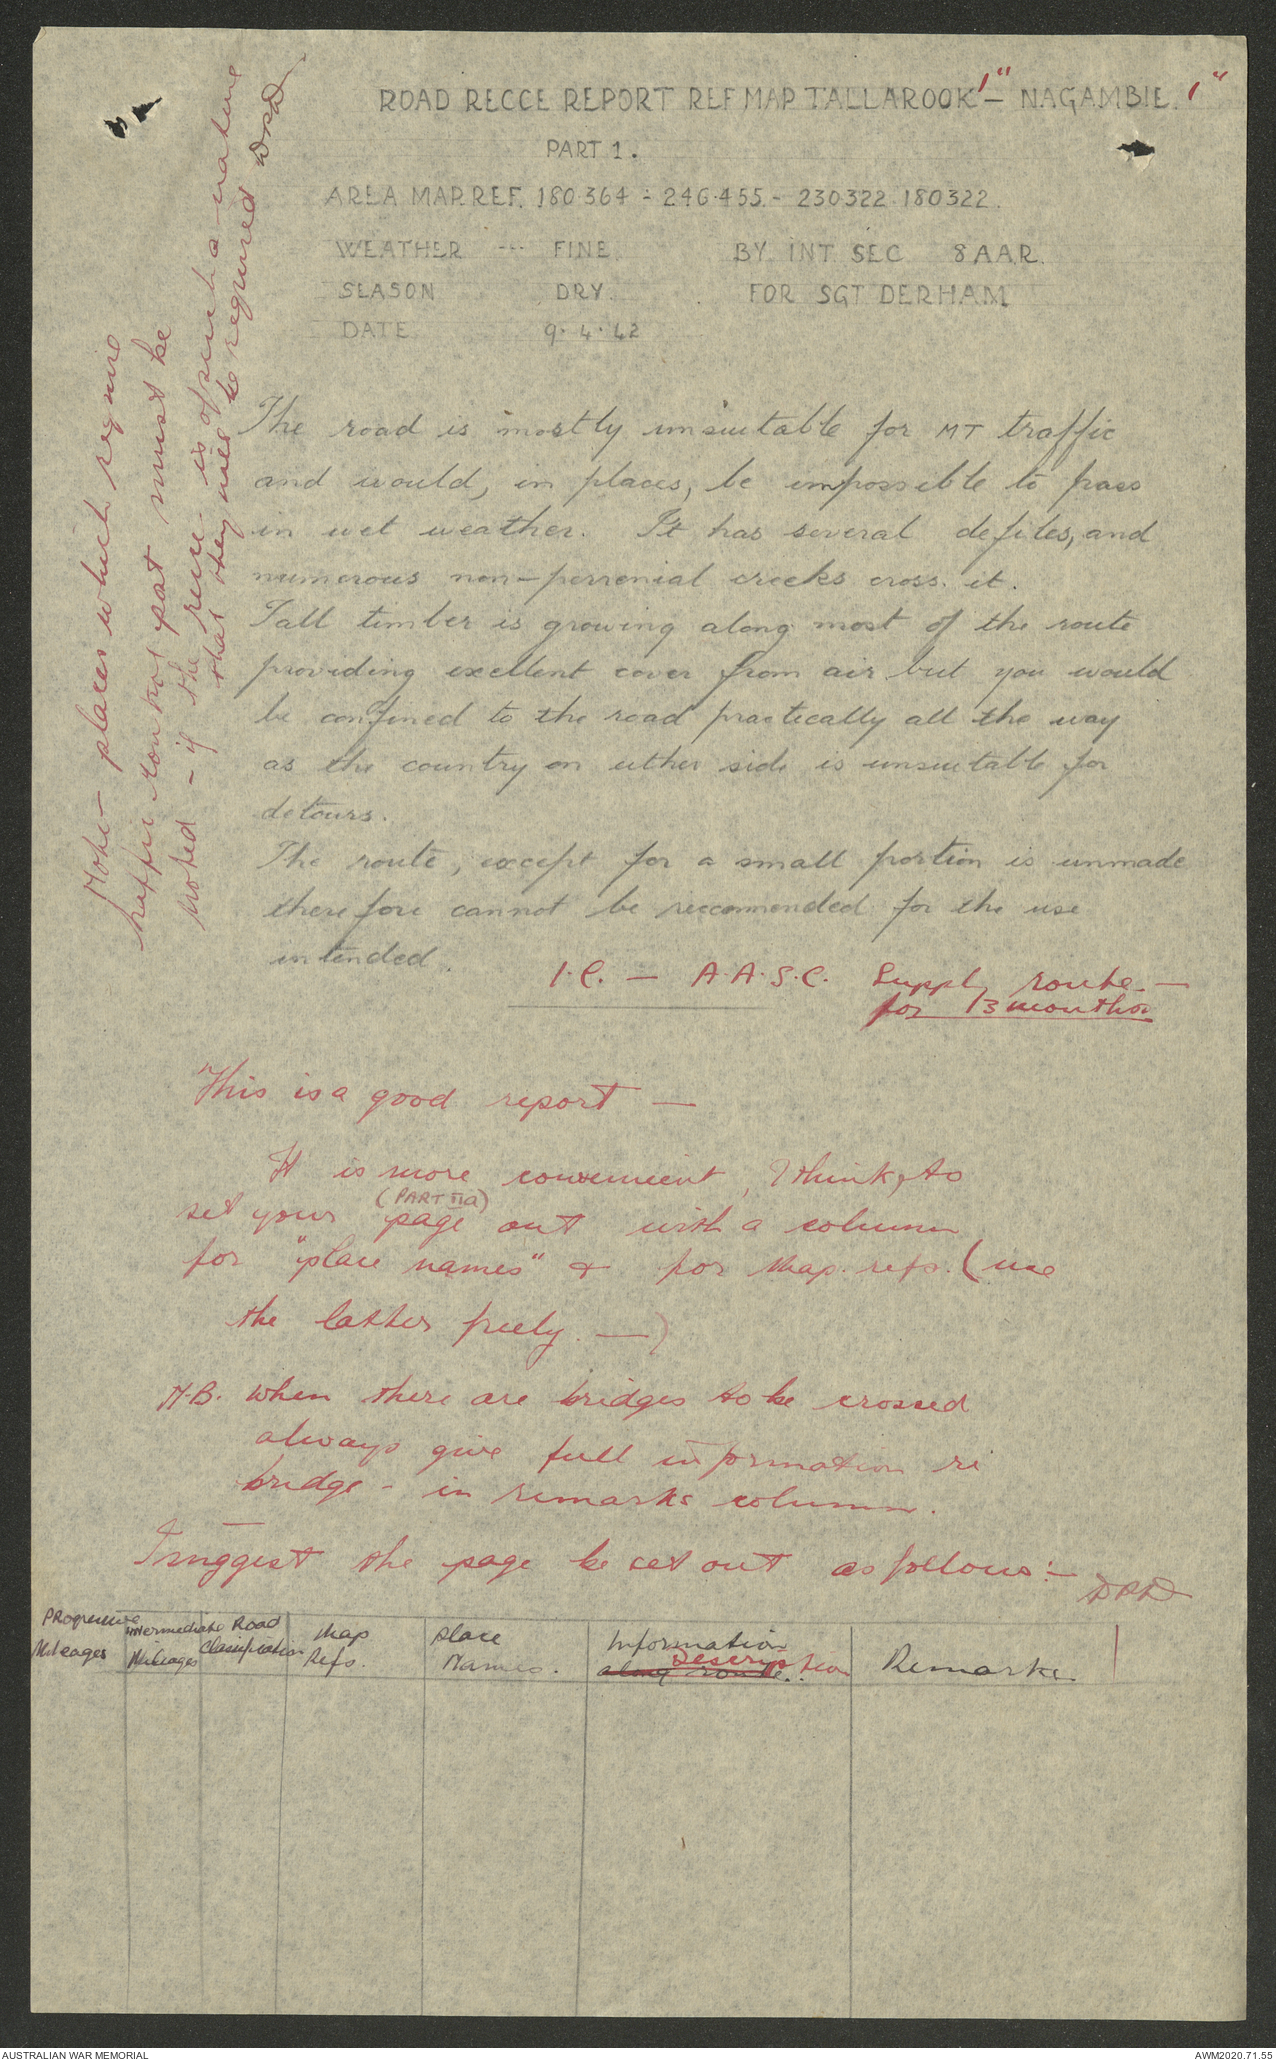 ROAD RECCE REPORT REF MAP TALLAROOK 1" - NAGAMBIE. 1"
PART 1.
AREA MAP REF. 180.364 - 246.455 - 230322. 180322.
WEATHER --- FINE. BY INT SEC 8 A.A.R.
SEASON DRY. FOR SGT DERHAM
DATE 9.4.42
The road is mostly unsuitable for MT traffic
and would, in places, be impossible to pass
in wet weather. It has several defiles, and
numerous non-perrenial creeks cross it.
Tall timber is growing along most of the route
providing excellent cover from air but you would
be confined to the road practically all the way
as the country on either side is unsuitable for
detours.
The route, except for a small portion is unmade
therefore cannot be reccommended for the use
intended.
I.E. - A.A.S.C. Supply route -
for 13 months
Note - places which require
traffic control pat must be
noted - if the recce. is of such a nature
that they will be required DRD
This is a good report -
It is more convenient, I think, to
set your page (PART IIa) out with a column
for "place names" & for Map. refs. (use
the latter freely. -)
N.B. when there are bridges to be crossed
always give full information re
bridge - in remarks column.
I suggest the page be set out as follows :- DRD
Progressive Mileages
Intermediate Mileages
Road Classification
Map Refs.
Place Names.
Information along route. Description
Remarks.
AUSTRALIAN WAR MEMORIAL AWM2020.71.55